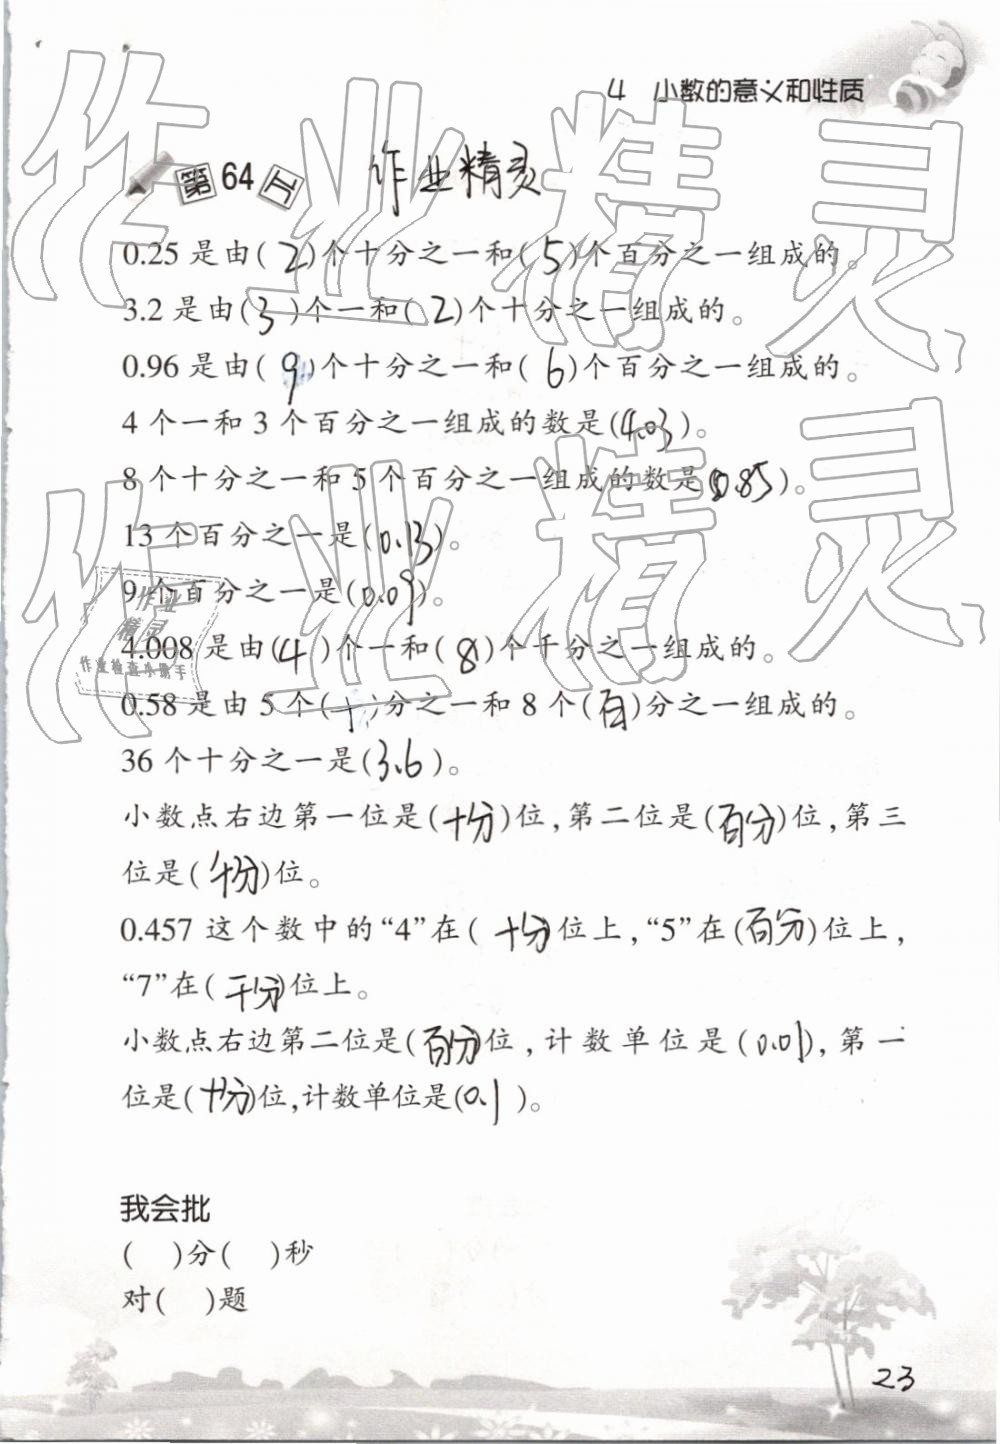 4 小数的意义和性质
第 64 页 作业精灵
0.25 是由( 2 )个十分之一和( 5 )个百分之一组成的。
3.2 是由( 3 )个一和( 2 )个十分之一组成的。
0.96 是由( 9 )个十分之一和( 6 )个百分之一组成的。
4 个一和 3 个百分之一组成的数是(4.03)。
8 个十分之一和 5 个百分之一组成的数是(0.85)。
13 个百分之一是(0.13)。
9 个百分之一是(0.09)。
4.008 是由( 4 )个一和( 8 )个千分之一组成的。
0.58 是由 5 个(十)分之一和 8 个(百)分之一组成的。
36 个十分之一是(3.6)。
小数点右边第一位是(十分)位,第二位是(百分)位,第三
位是(千分)位。
0.457 这个数中的“4”在(十分)位上,“5”在(百分)位上,
“7”在(千分)位上。
小数点右边第二位是(百分)位,计数单位是(0.01),第一
位是(十分)位,计数单位是(0.1)。
我会批
( )分( )秒
对( )题
23
作业精灵
作业精灵
作业
精灵
作业检查小助手